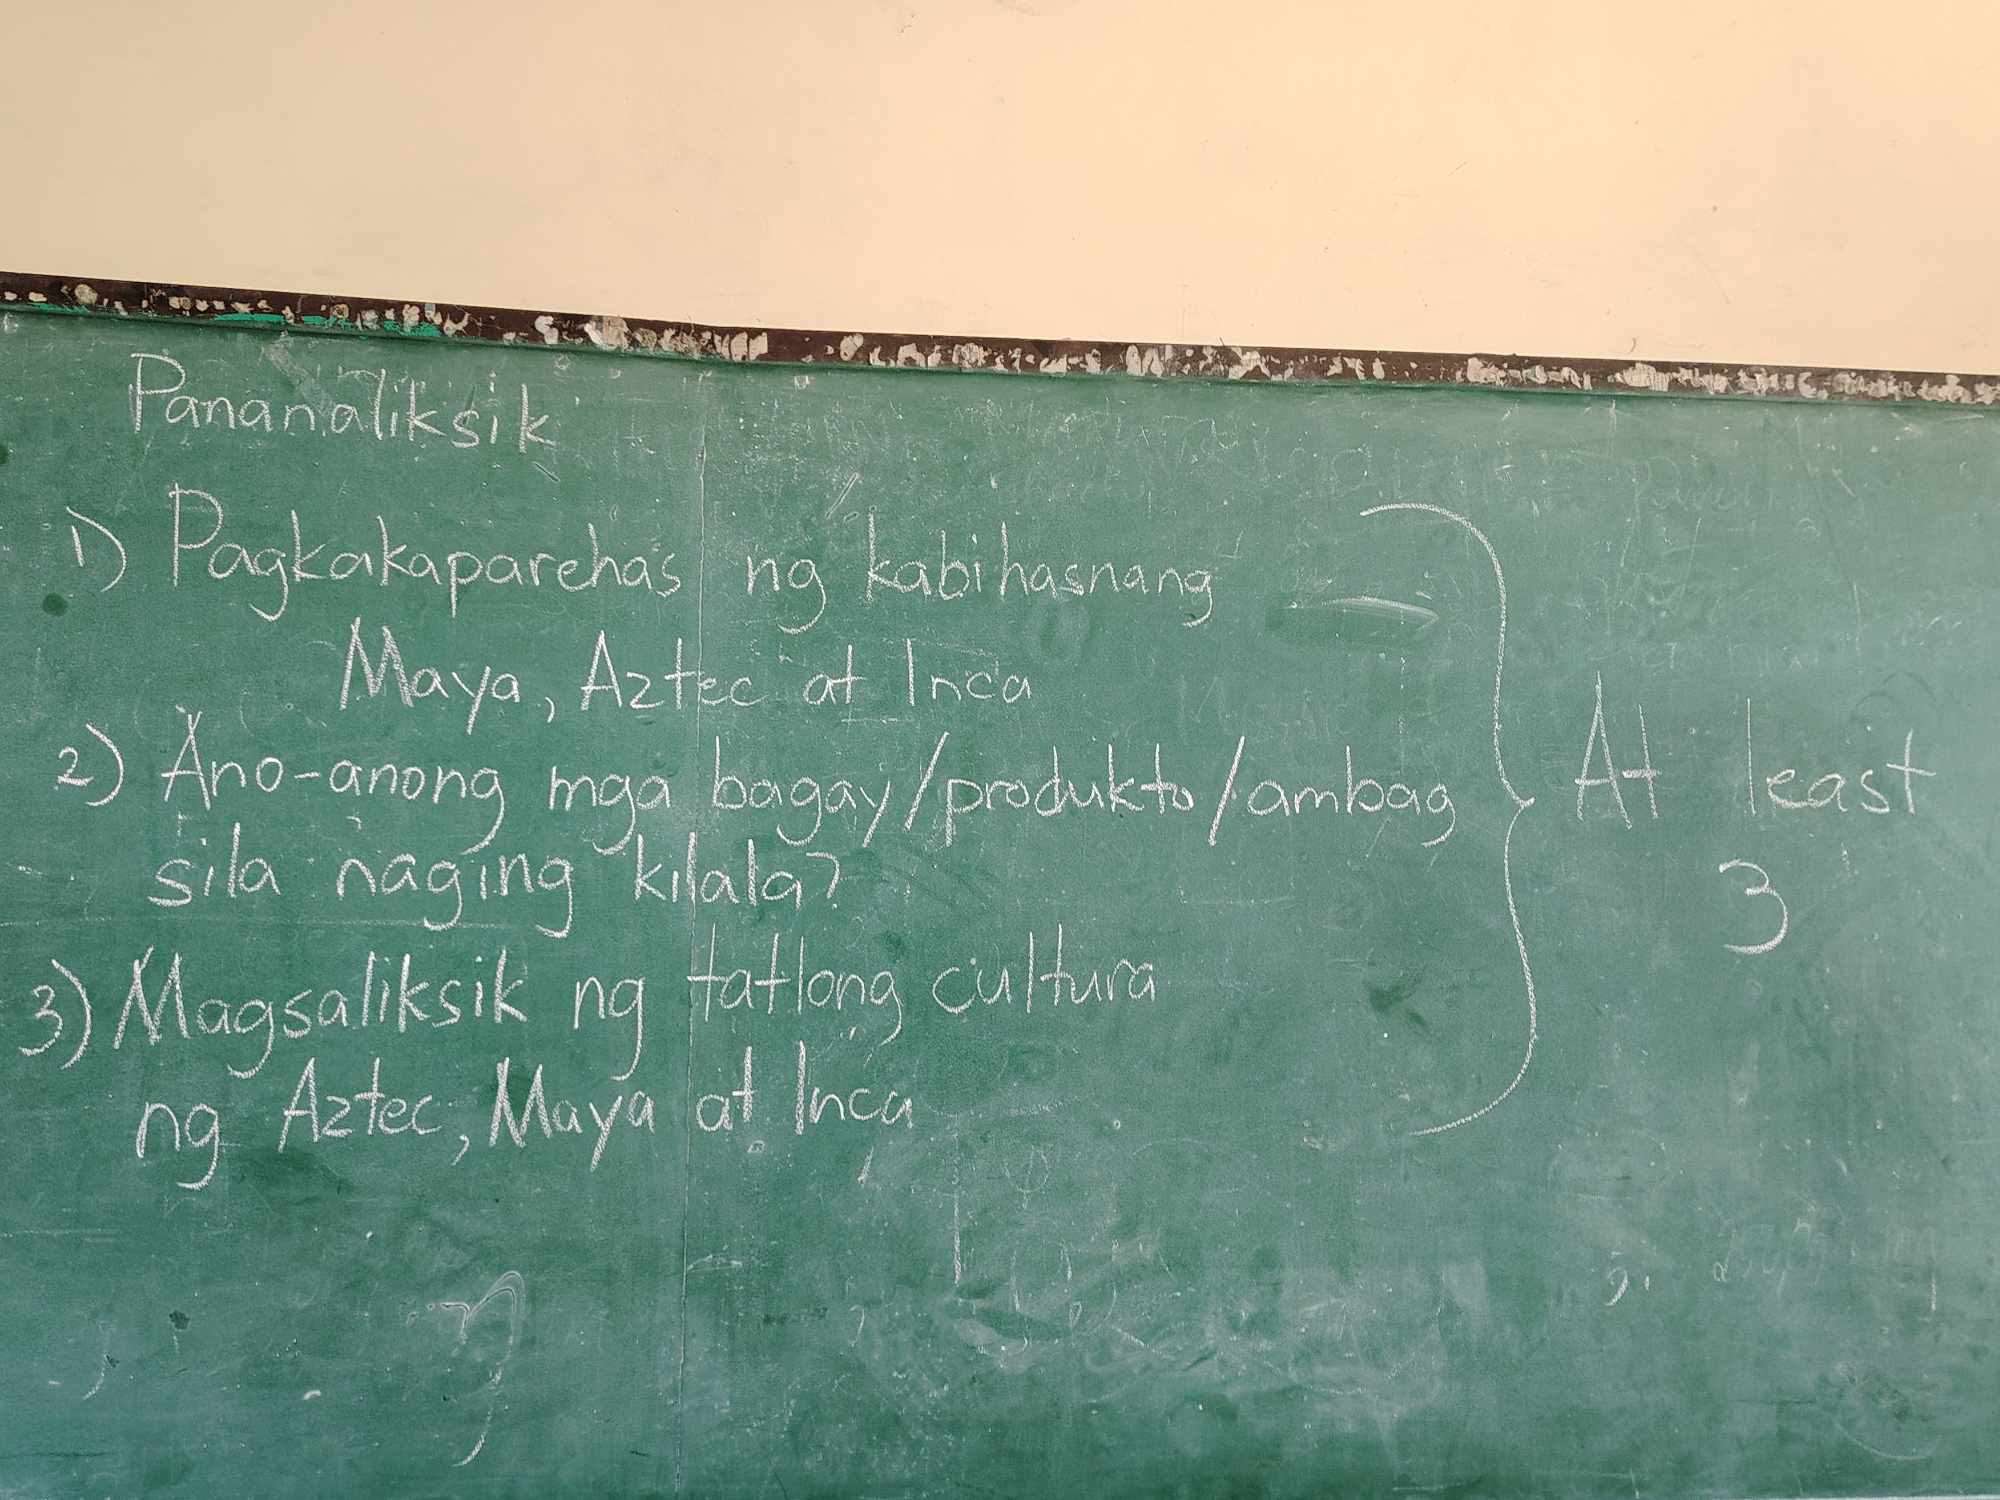 Pananaliksik
1) Pagkakaparehas ng kabihasnang
Maya, Aztec at Inca
2) Ano-anong mga bagay/produkto/ambag
sila naging kilala?
3) Magsaliksik ng tatlong cultura
ng Aztec, Maya at Inca
At least
3